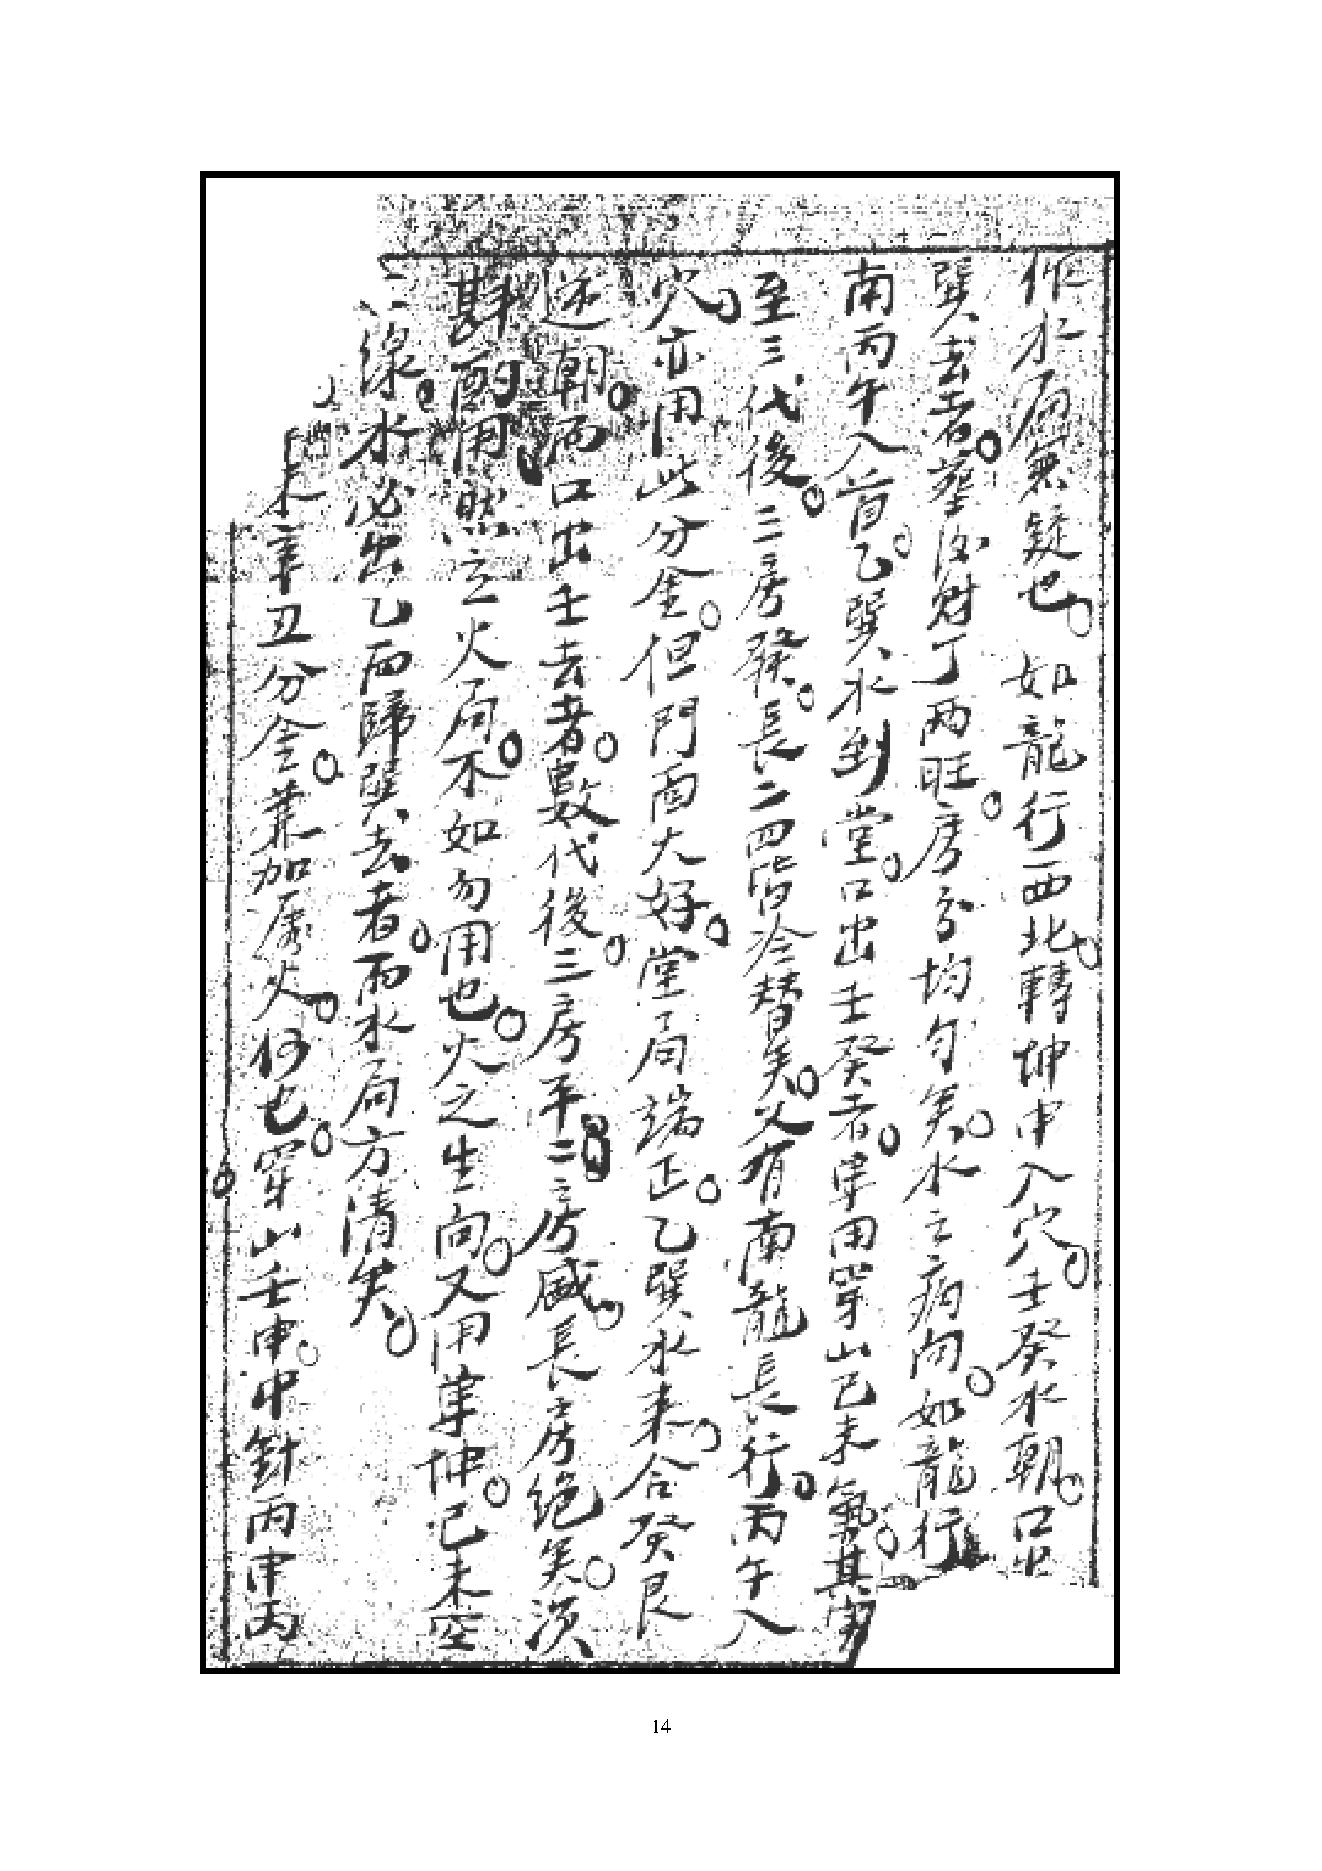 作水局無疑也。如龍行西北。轉坤申入穴。壬癸水朝。口出
巽去者。塟后財丁兩旺。房分均勻矣。水之病向。如龍行
南丙午入首。乙巽水到堂。口出壬癸者。單用穿山己未氣。其
至三代後。三房發。長二四皆冷替矣。又有南龍長行。丙午入
穴。亦用此分金。但門面大好。堂局端正。乙巽水来。合癸艮
逆朝。而口出壬去者。數代後。三房平。二房盛。長房絕矣。須
斟酌用然立火局。不如勿用也。火之生向。又用單坤。己未空
線。水必出乙而歸巽去者。而水局方清矣。
未辛丑分金。兼加属火。何也。穿山壬申。中針丙申丙
14